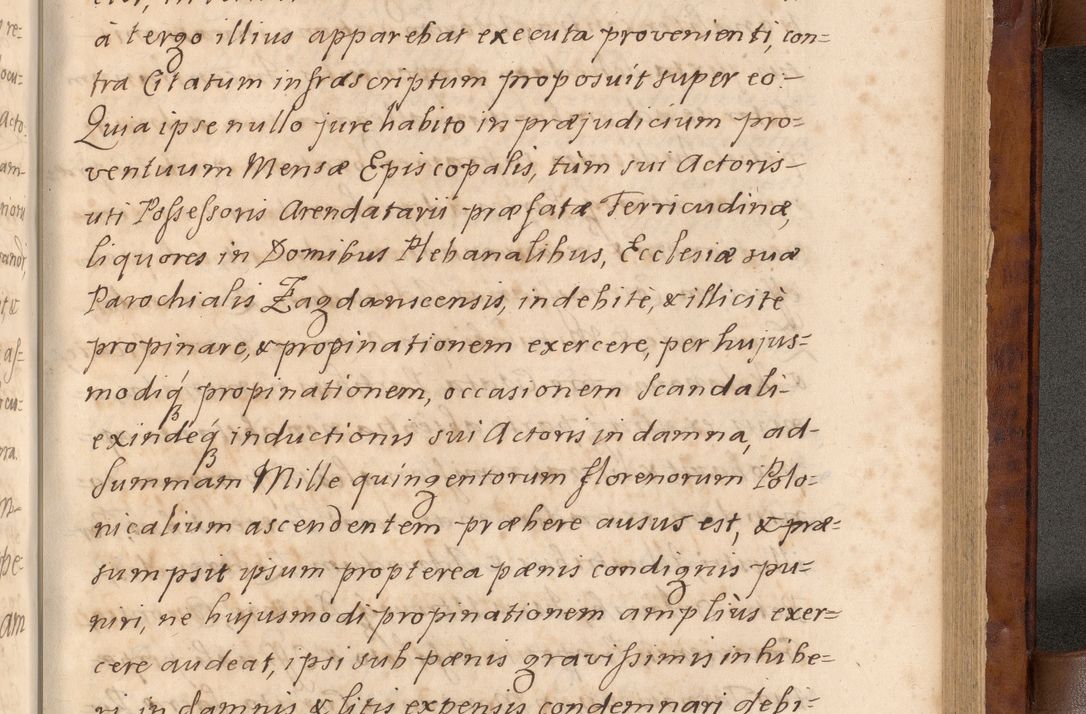 à tergo illius apparebat executa provenienti, con=
tra Citatum infrascriptum proposuit super eo.
Quia ipse nullo jure habito in præjudicium pro=
ventuum Mensæ Episcopalis, tùm sui Actoris
uti Possessoris Arendatarii præfatæ Terricudinæ,
liquores in Domibus Plebanalibus, Ecclesiæ suæ
Parochialis Zagdanicensis, indebitè, & illicitè
propinare, & propinationem exercere, per hujus=
modiq́ propinationem, occasionem scandali
exindeq́ inductionis sui Actoris in damna, ad
summam Mille quingentorum florenorum Polo=
nicalium ascendentem præbere ausus est, & præ=
sumpsit ipsum propterea pænis condignis pu=
niri, ne hujusmodi propinationem amplius exer=
cere audeat, ipsi sub pænis gravissimis inhibe=
ri, in damnis & litis expensis condemnari debi=